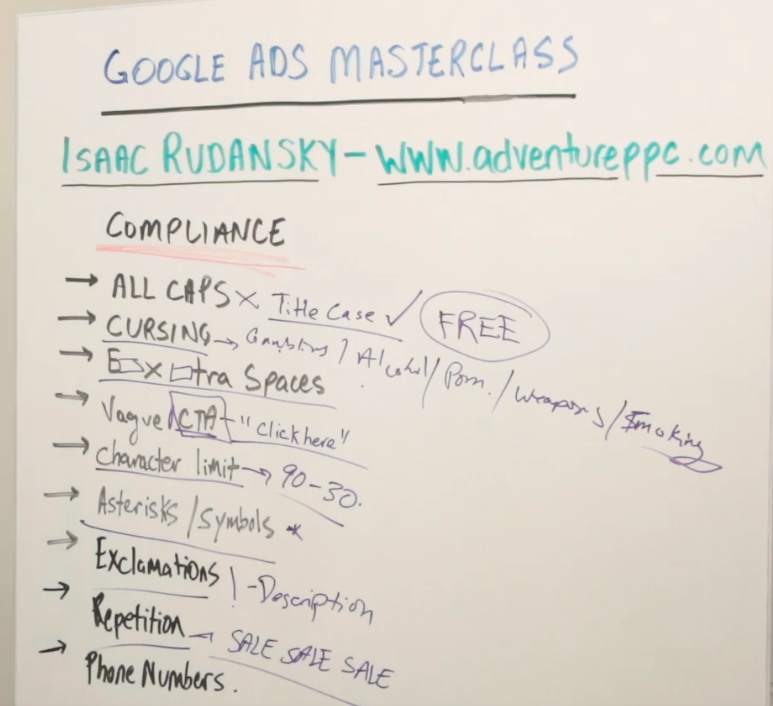 GOOGLE ADS MASTERCLASS
ISAAC RUDANSKY - www.adventureppc.com
COMPLIANCE
→ ALL CAPS × Title Case ✓ FREE
→ CURSING → Gambling / Alcohol / Porn. / Weapons / Smoking
→ E x tra Spaces
→ Vague CTA - "Click here"
→ Character limit → 90-30.
→ Asterisks / Symbols *
→ Exclamations ! - Description
→ Repetition → SALE SALE SALE
→ Phone Numbers.